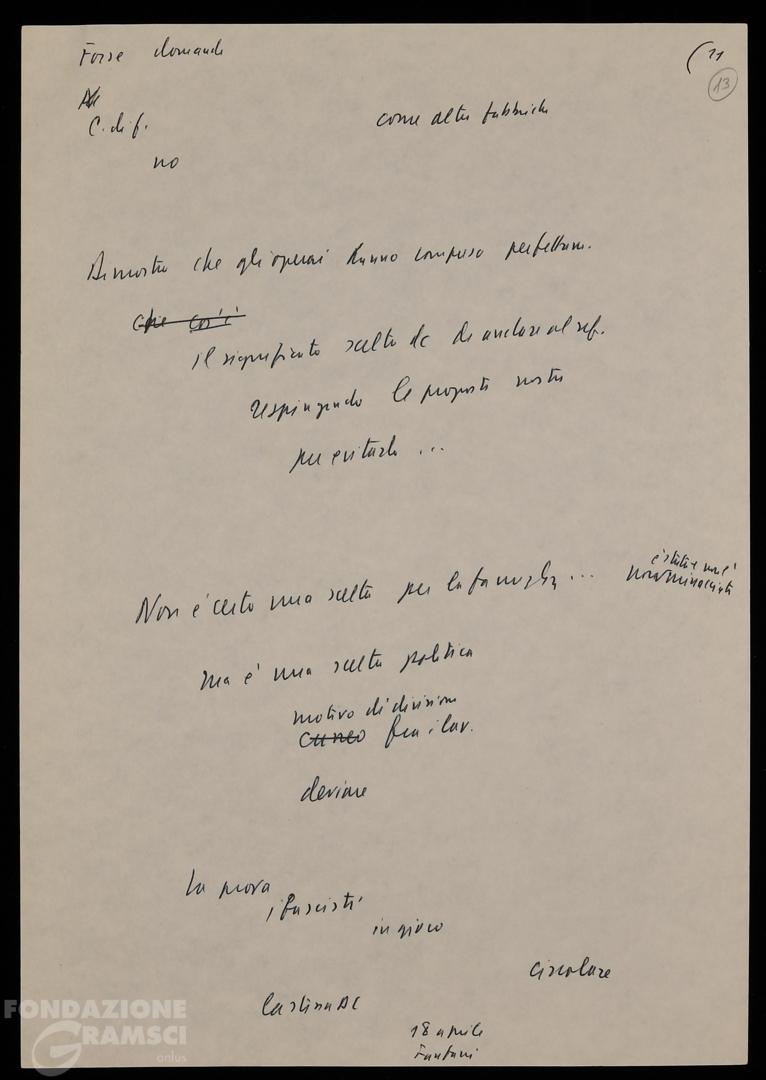 Forse domande
(11
13
C. di f.
come altre fabbriche
no
Dimostra che gli operai hanno compreso perfettam.
che cos'è
il significato scelta dc di andare al ref.
respingendo le proposte nostre
per evitarlo ...
Non è certo una scelta per la famiglia ...
è stata e non è
minacciata
ma è una scelta politica
motivo di divisione
cuneo fra i lav.
deviare
La prova
i fascisti
in gioco
circolare
La stessa DC
18 aprile
Fanfani
FONDAZIONE
GRAMSCI
onlus